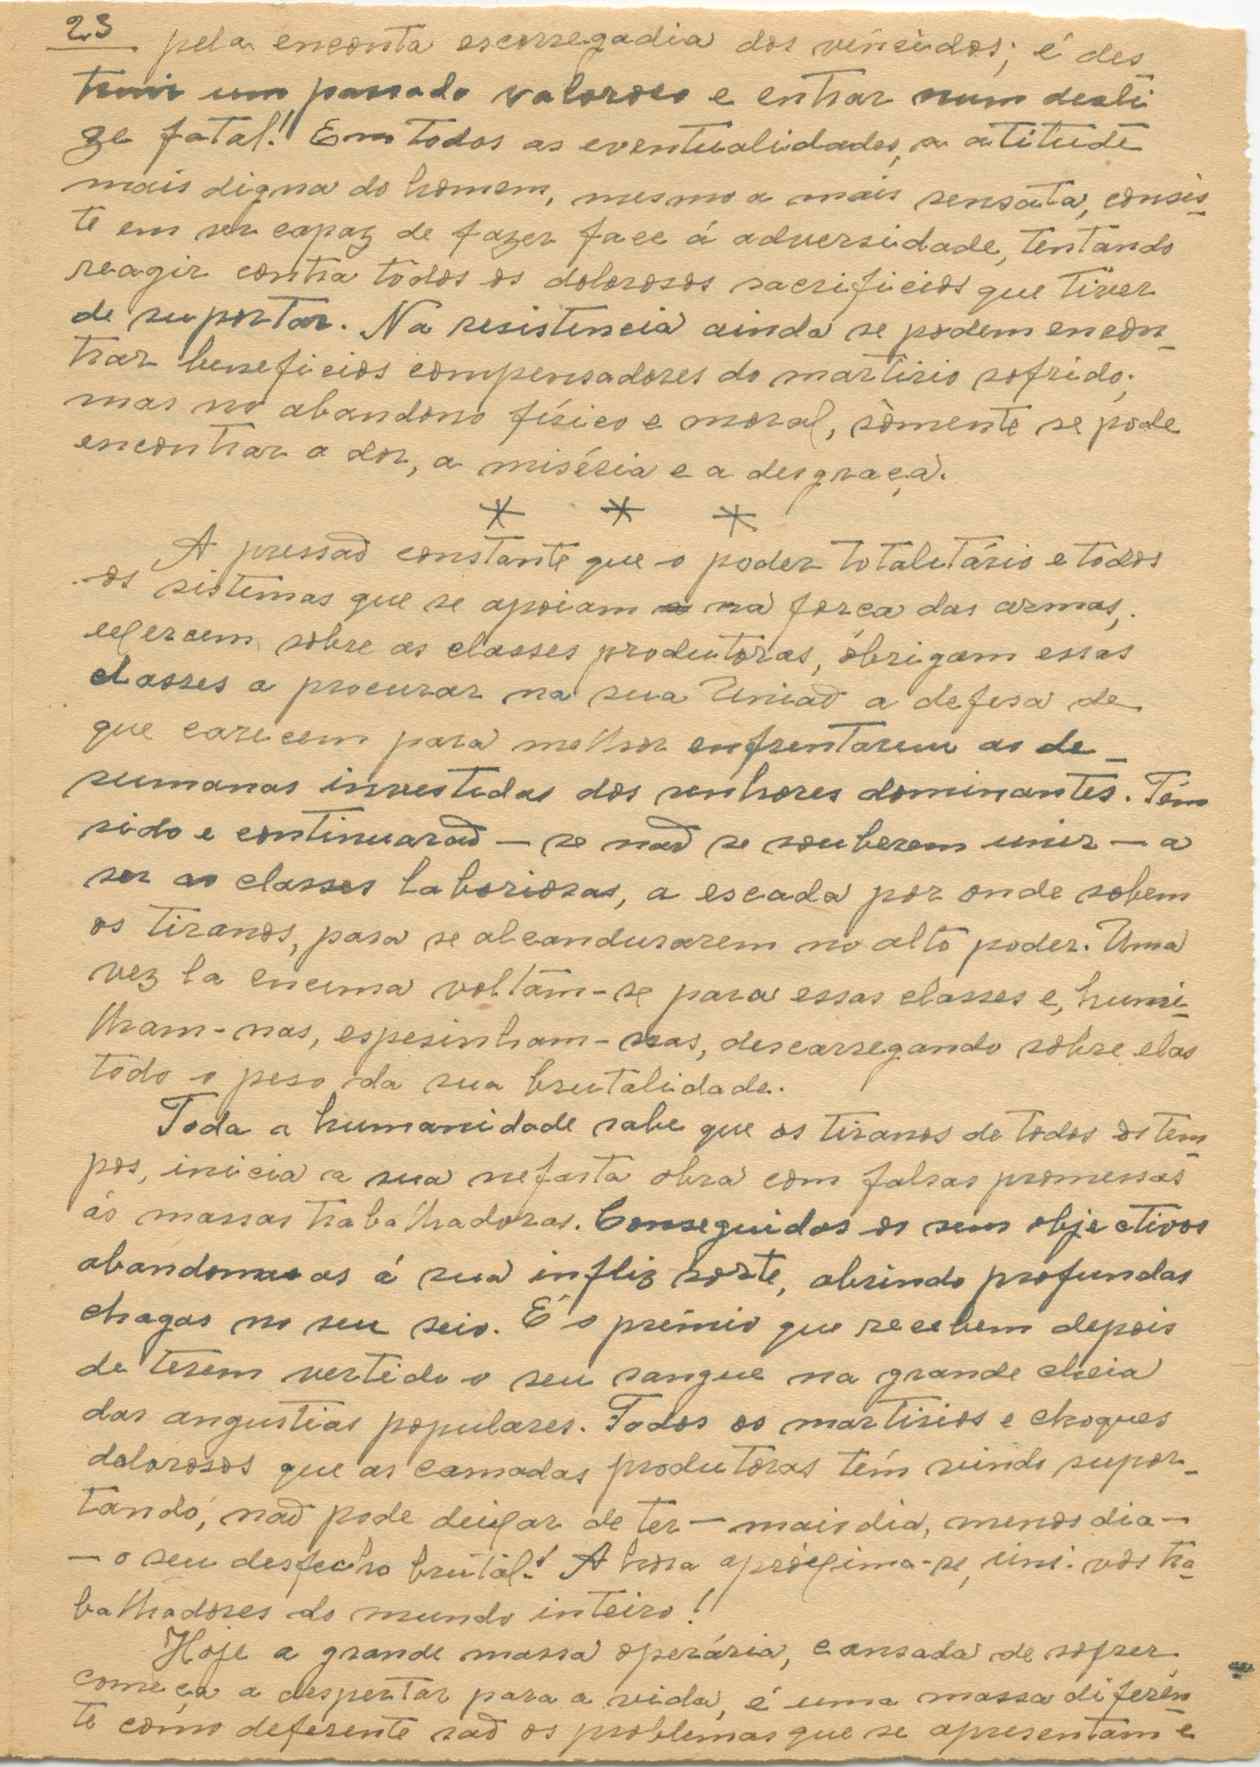 23
pela encosta escorregadia dos vencidos; é des
truir um passado valoroso e entrar num desli
ze fatal! Em todos as eventualidades, a atitude
mais digna do homem, mesmo a mais sensata, consis-
te em ser capaz de fazer face á adversidade, tentando
reagir contra todos os dolorosos sacrificios que tiver
de suportar. Na resistencia ainda se podem encon-
trar beneficios compensadores do martirio sofrido;
mas no abandono físico e moral, sòmente se pode
encontrar a dor, a miséria e a desgraça.
* * *
A pressaõ constante que o poder totalitário e todos
os sistemas que se apoiam na força das armas,
exercem sobre as classes produtoras, obrigam essas
classes a procurar na sua Uniaõ a defesa de
que carecem para melhor enfrentarem as de-
sumanas investidas dos senhores dominantes. Têm
sido e continuaraõ — se naõ se souberem unir — a
ser as classes laboriosas, a escada por onde sobem
os tiranos, para se alcandurarem no alto poder. Uma
vez la encima voltam-se para essas classes e, humi-
lham-nas, espesinham-nas, descarregando sobre elas
todo o peso da sua brutalidade.
Toda a humanidade sabe que os tiranos de todos os tem-
pos, inicia a sua nefasta obra com falsas promessas
ás massas trabalhadoras. Conseguidos os seus objectivos
abandonaas á sua infliz sorte, abrindo profundas
chagas no seu seio. É o prémio que recebem depois
de terem vertido o seu sangue na grande cheia
das angustias populares. Todos os martirios e choques
dolorosos que as camadas produtoras têm vindo supor-
tando, naõ pode deixar de ter — mais dia, menos dia —
— o seu desfecho brutal! A hora apróxima-se, uni-vos tra-
balhadores do mundo inteiro!
Hoje a grande massa operária, cansada de sofrer
começa a despertar para a vida, é uma massa diferen-
te como deferente saõ os problemas que se apresentam e